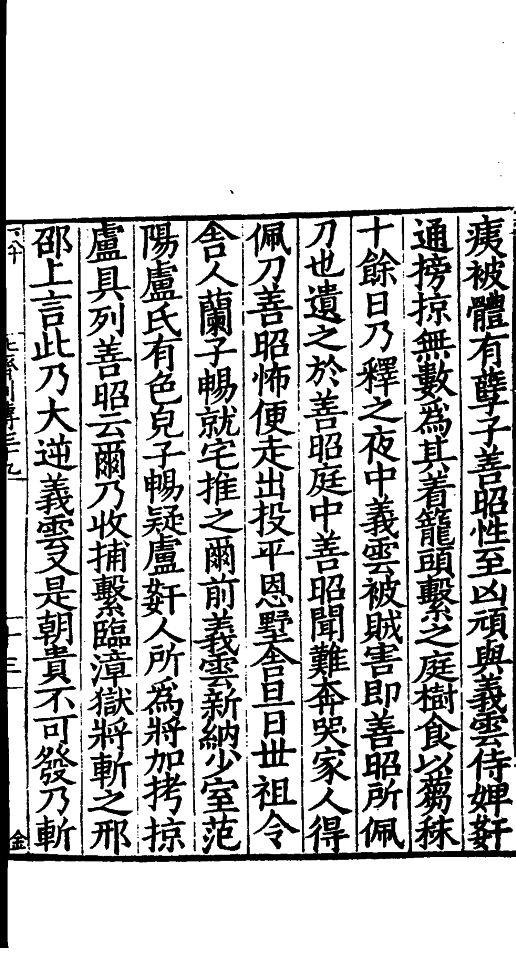 痍被體有孽子善昭性至凶頑與義雲侍婢姧
通搒掠無數爲其着籠頭繫之庭樹食以蒭秣
十餘日乃釋之夜中義雲被賊害即善昭所佩
刀也遺之於善昭庭中善昭聞難奔哭家人得
佩刀善昭怖便走出投平恩墅舍旦日世祖令
舎人蘭子暢就宅推之爾前義雲新納少室范
陽盧氏有色皃子暢疑盧姧人所爲將加拷掠
盧具列善昭云爾乃收捕繫臨漳獄將斬之邢
邵上言此乃大逆義雲又是朝貴不可發乃斬
十三
金